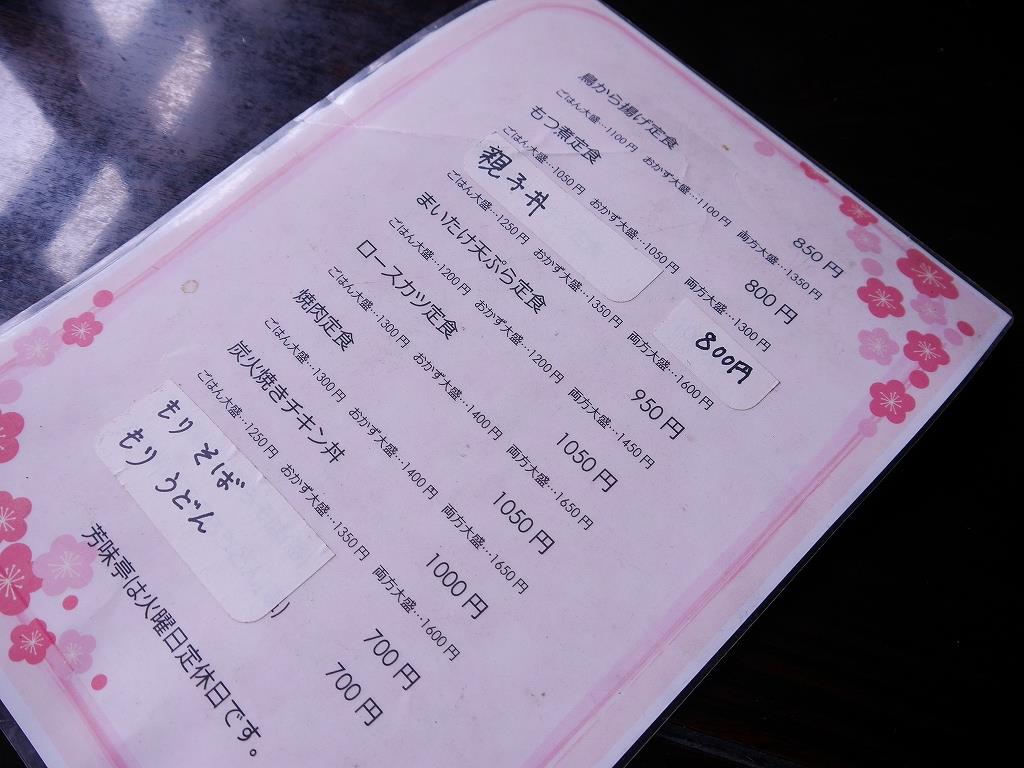 鳥から揚げ定食 850円
ごはん大盛…1100円 おかず大盛…1100円 両方大盛…1350円
もつ煮定食 800円
ごはん大盛…1050円 おかず大盛…1050円 両方大盛…1300円
親子丼 800円
ごはん大盛…1250円 おかず大盛…1350円 両方大盛…1600円
まいたけ天ぷら定食 950円
ごはん大盛…1200円 おかず大盛…1200円 両方大盛…1450円
ロースカツ定食 1050円
ごはん大盛…1300円 おかず大盛…1400円 両方大盛…1650円
焼肉定食 1050円
ごはん大盛…1300円 おかず大盛…1400円 両方大盛…1650円
炭火焼きチキン丼 1000円
ごはん大盛…1250円 おかず大盛…1350円 両方大盛…1600円
もりそば 700円
もりうどん 700円
芳味亭は火曜日定休日です。